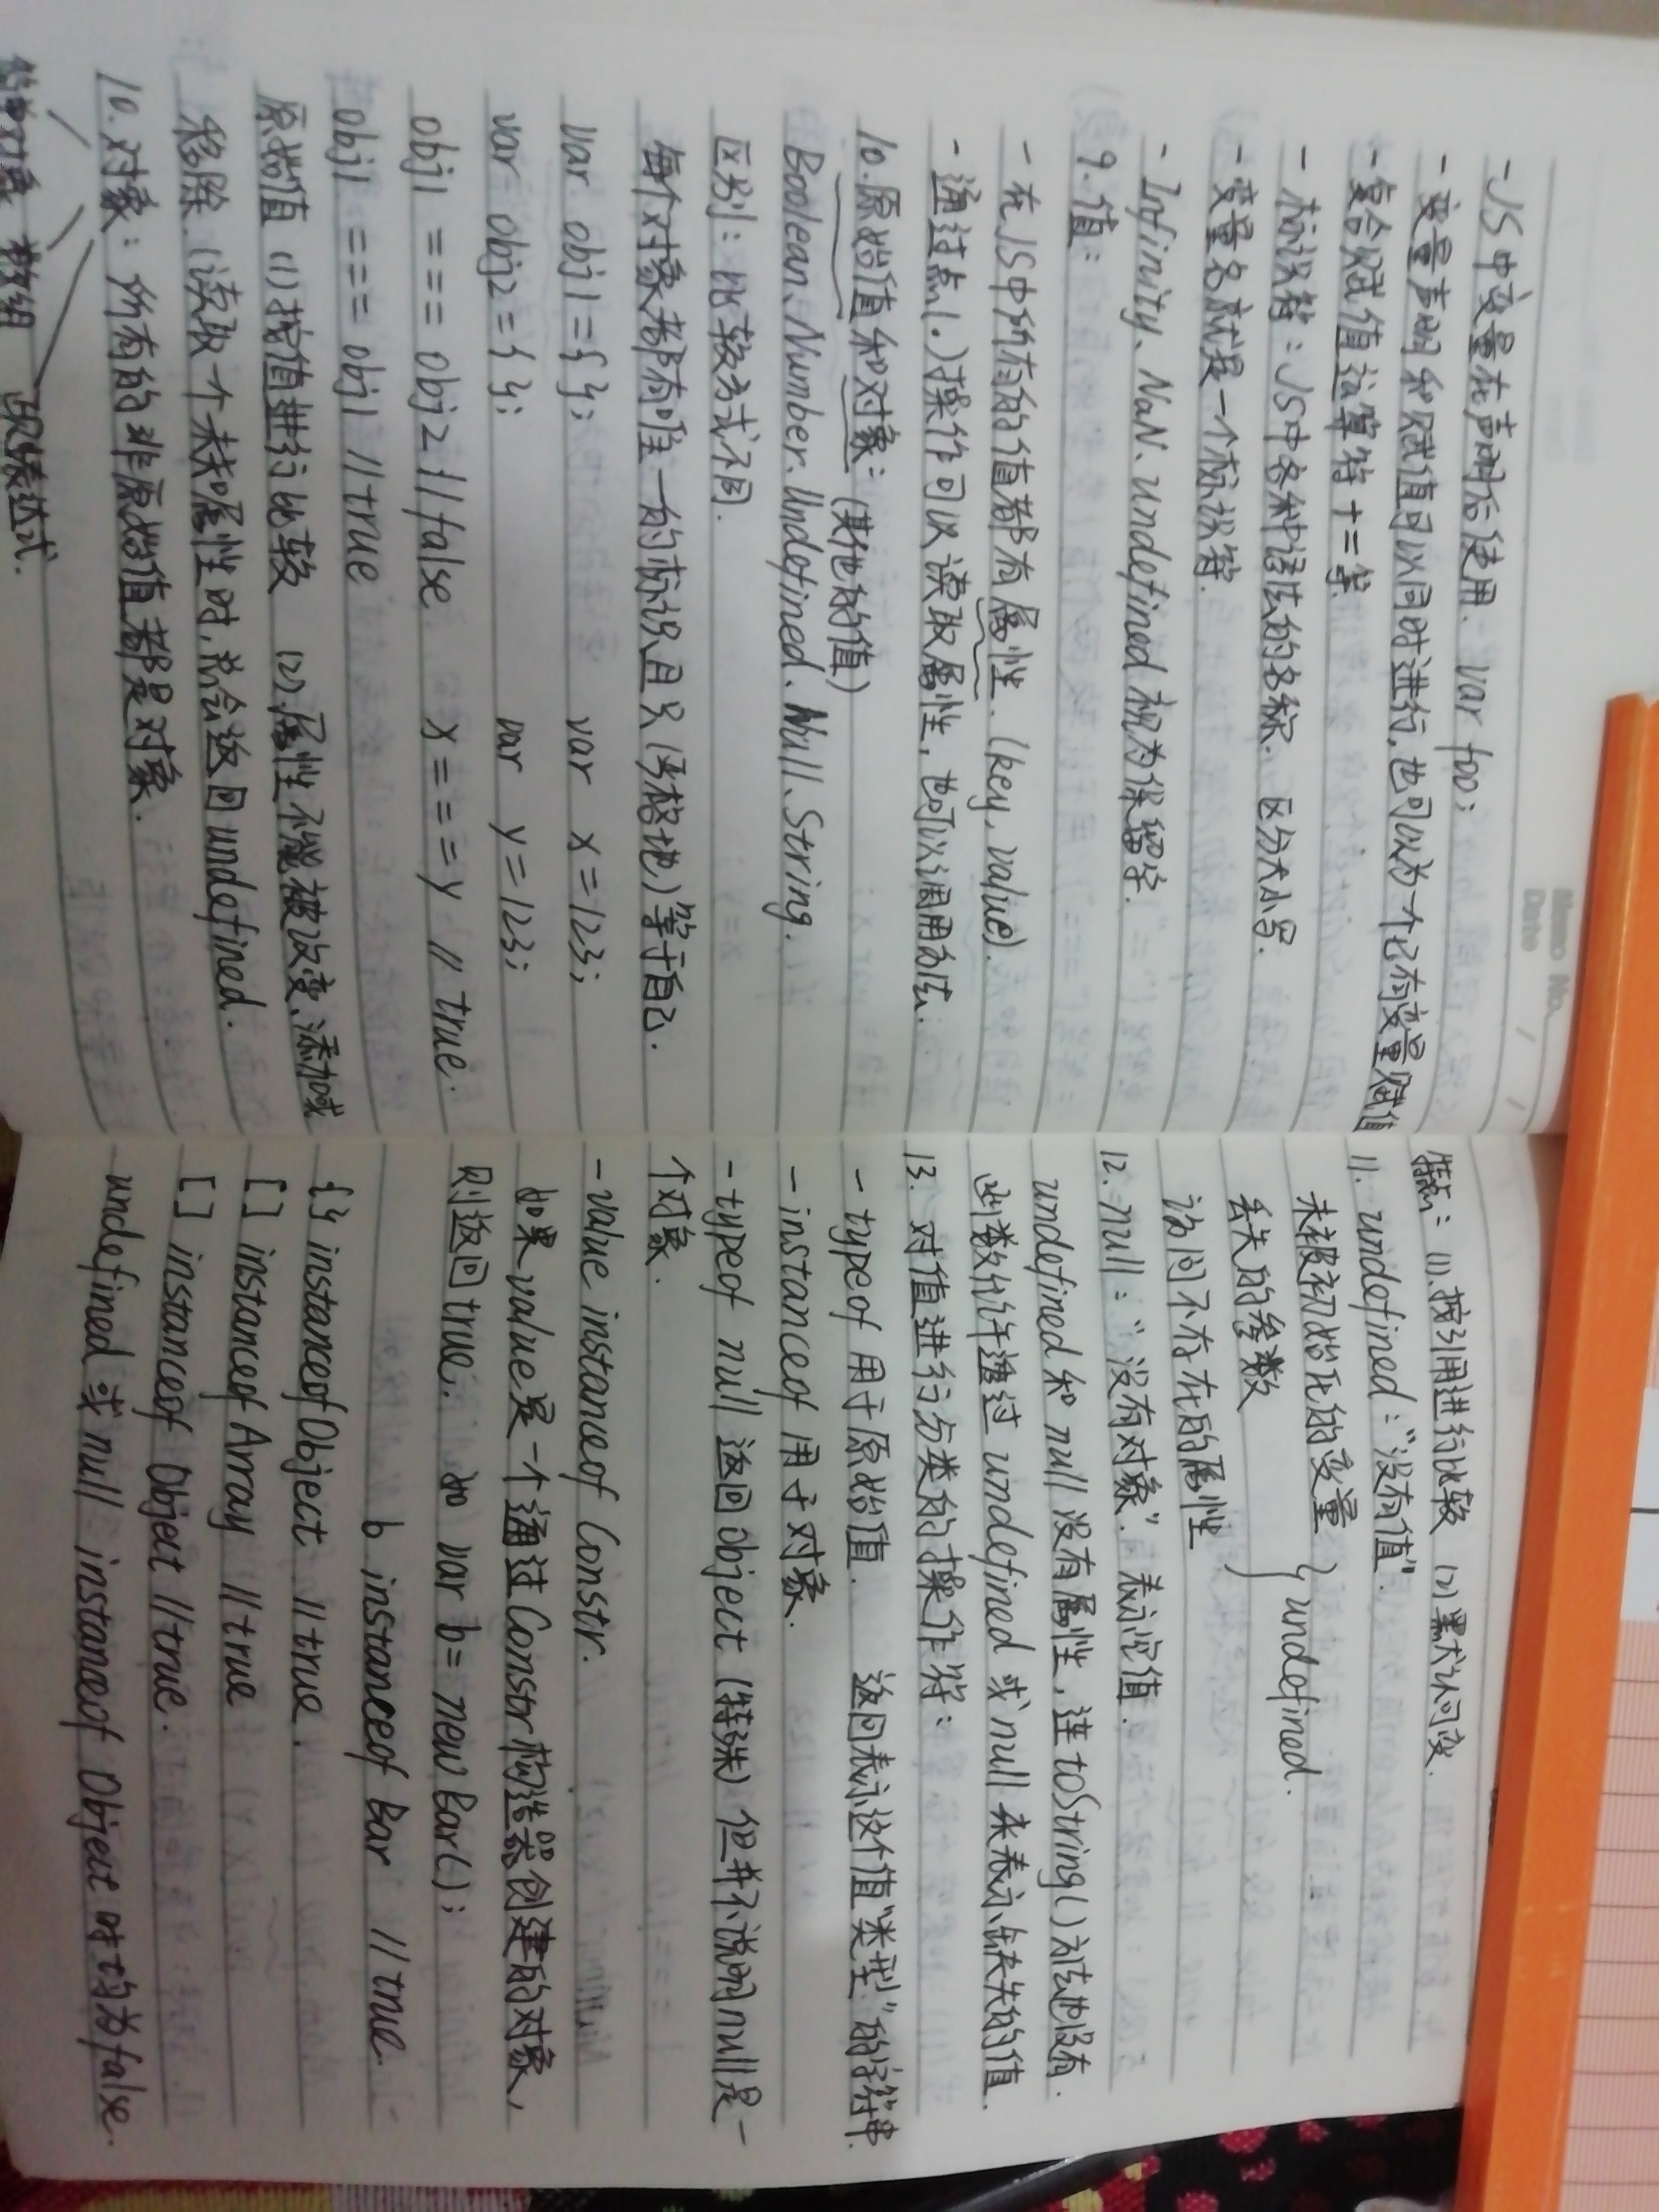 Memo No.
Date / /
-JS中变量在声明后使用. var foo;
-变量声明和赋值可以同时进行,也可以为一个已有变量赋值
-复合赋值运算符 += 等
-标识符:JS中各种语法的名称. 区分大小写.
-变量名就是一个标识符.
-Infinity、NaN、undefined 视为保留字.
9.值:
-在JS中所有的值都有属性.(key,value).
-通过点(.)操作可以读取属性,也可以调用方法.
10.原始值和对象:(其他的值)
Boolean、Number、Undefined、Null、String.
区别:比较方式不同.
每个对象都有唯一的标识且只(严格地)等于自己.
var obj1={}; var x=123;
var obj2={}; var y=123;
obj1 === obj2 //false x===y // true.
obj1 === obj1 //true
原始值 (1)按值进行比较 (2)属性不能被改变、添加或
移除.(读取一个未知属性时,总会返回undefined.
10.对象:所有的非原始值都是对象.
简单对象 数组 正则表达式.
特点:(1).按引用进行比较 (2)默认可变.
11. undefined:“没有值”.
未被初始化的变量
丢失的参数 } undefined.
访问不存在的属性
12.null:“没有对象”.表示空值.
undefined和null没有属性,连toString()方法也没有.
函数允许透过undefined或null来表示缺失的值.
13. 对值进行分类的操作符:
- typeof 用于原始值. 返回表示这个值“类型”的字符串.
- instanceof 用于对象.
-typeof null 返回object(特殊)但并不说明null是一
个对象.
-value instanceof Constr.
如果value是一个通过Constr构造器创建的对象,
则返回true. 如 var b= new Bar();
b instanceof Bar //true.
{} instanceof Object //true.
[] instanceof Array //true
[] instanceof Object //true.
undefined 或 null instanceof Object 时均为false.